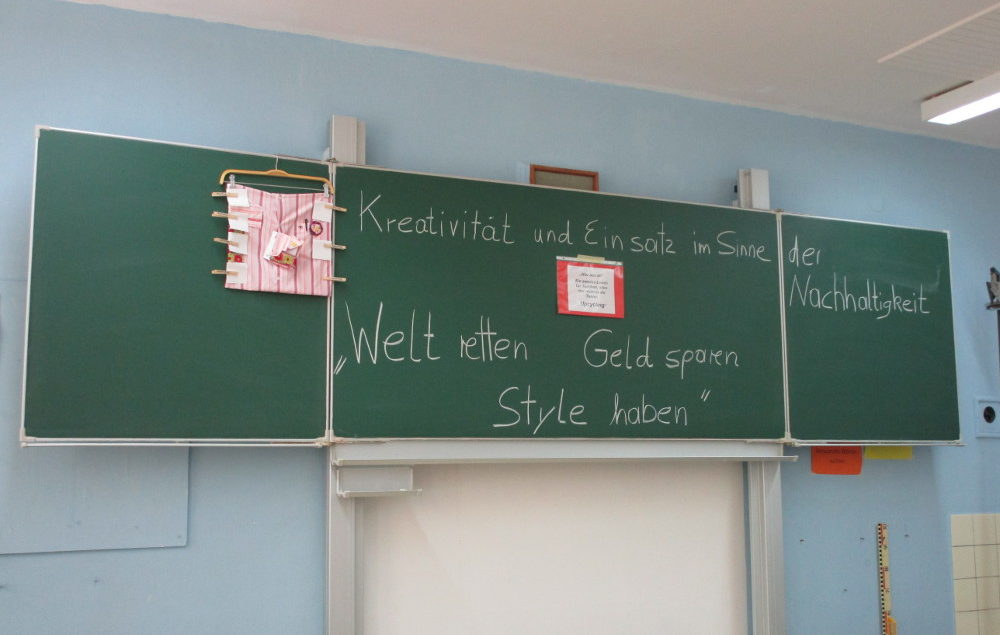 Kreativität und Einsatz im Sinne der
Nachhaltigkeit
„Welt retten Geld sparen
Style haben"
Upcycling